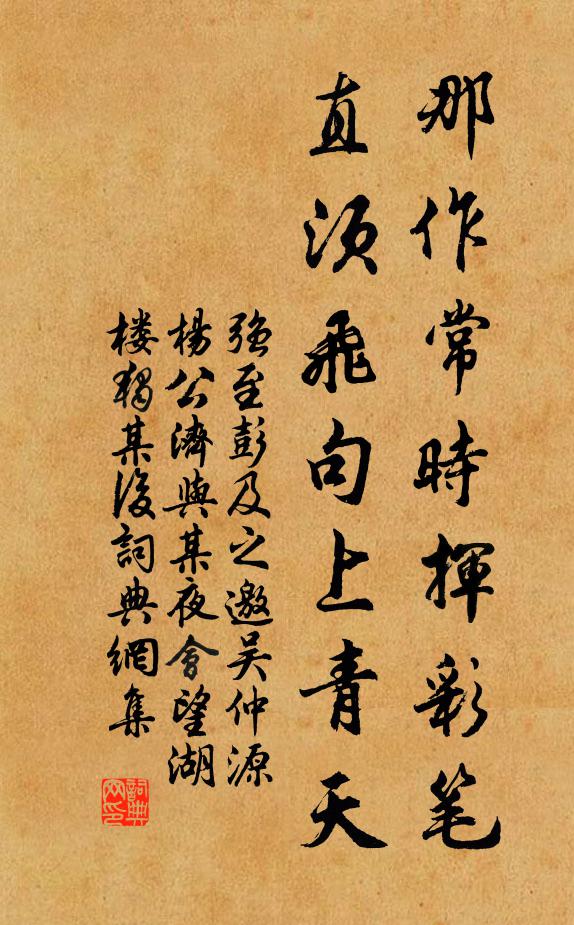 那作常時揮彩笔
直須飛句上青天
強至彭及之邀吴仲源
楊公濟與某夜會望湖
楼獨某後詞典網集
詞典網印